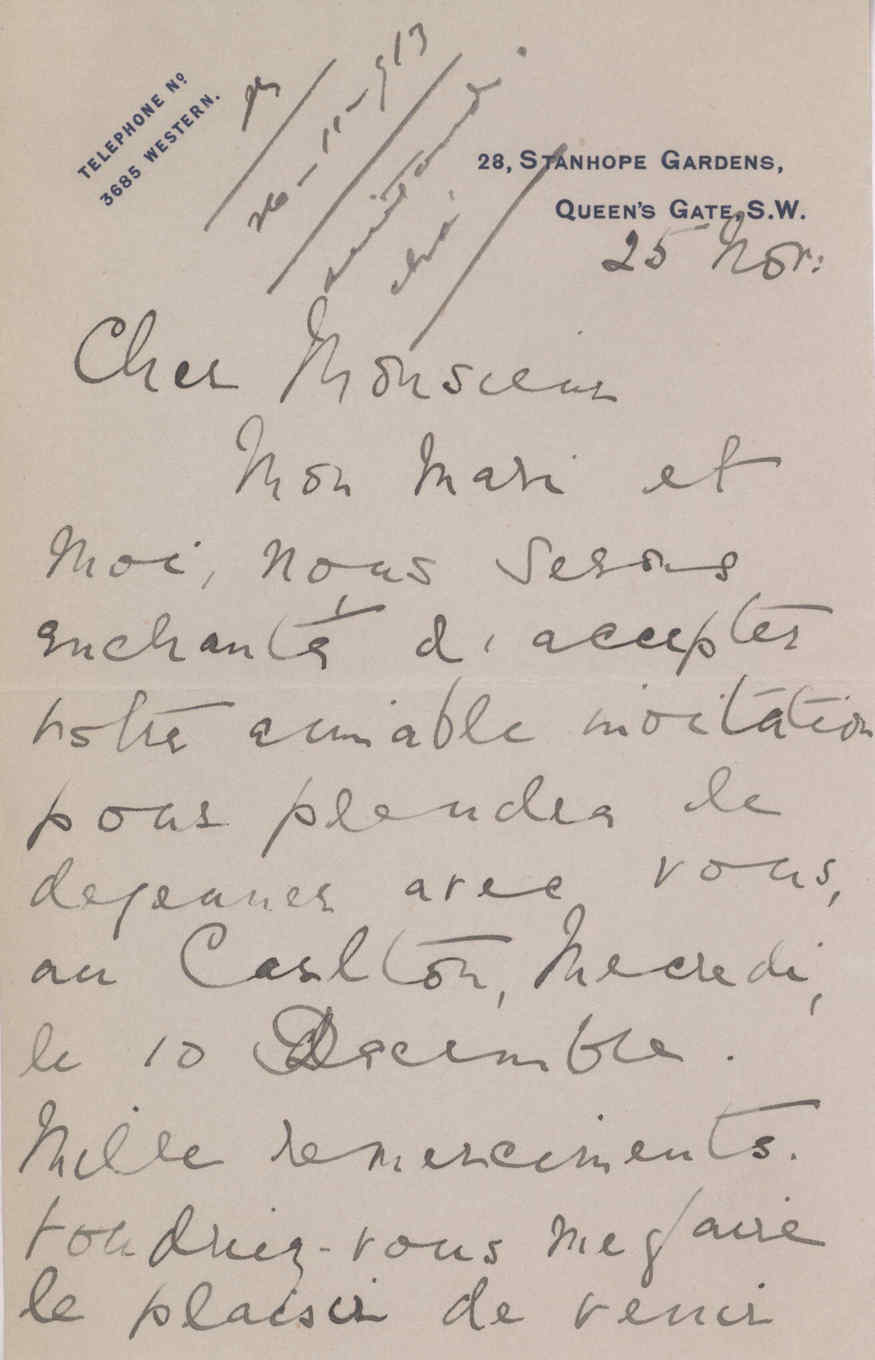 TELEPHONE Nº
3685 WESTERN.
26-11-913
28, STANHOPE GARDENS,
QUEEN'S GATE, S.W.
25 Nov:
Cher Monsieur
Mon Mari et
Moi, nous serons
enchantés d'accepter
votre aimable invitation
pour prendre le
dejeuner avec vous,
au Carlton, Mecredi,
le 10 Decembre.
Mille remerciments.
Voudriez-vous me faire
le plaisir de venir